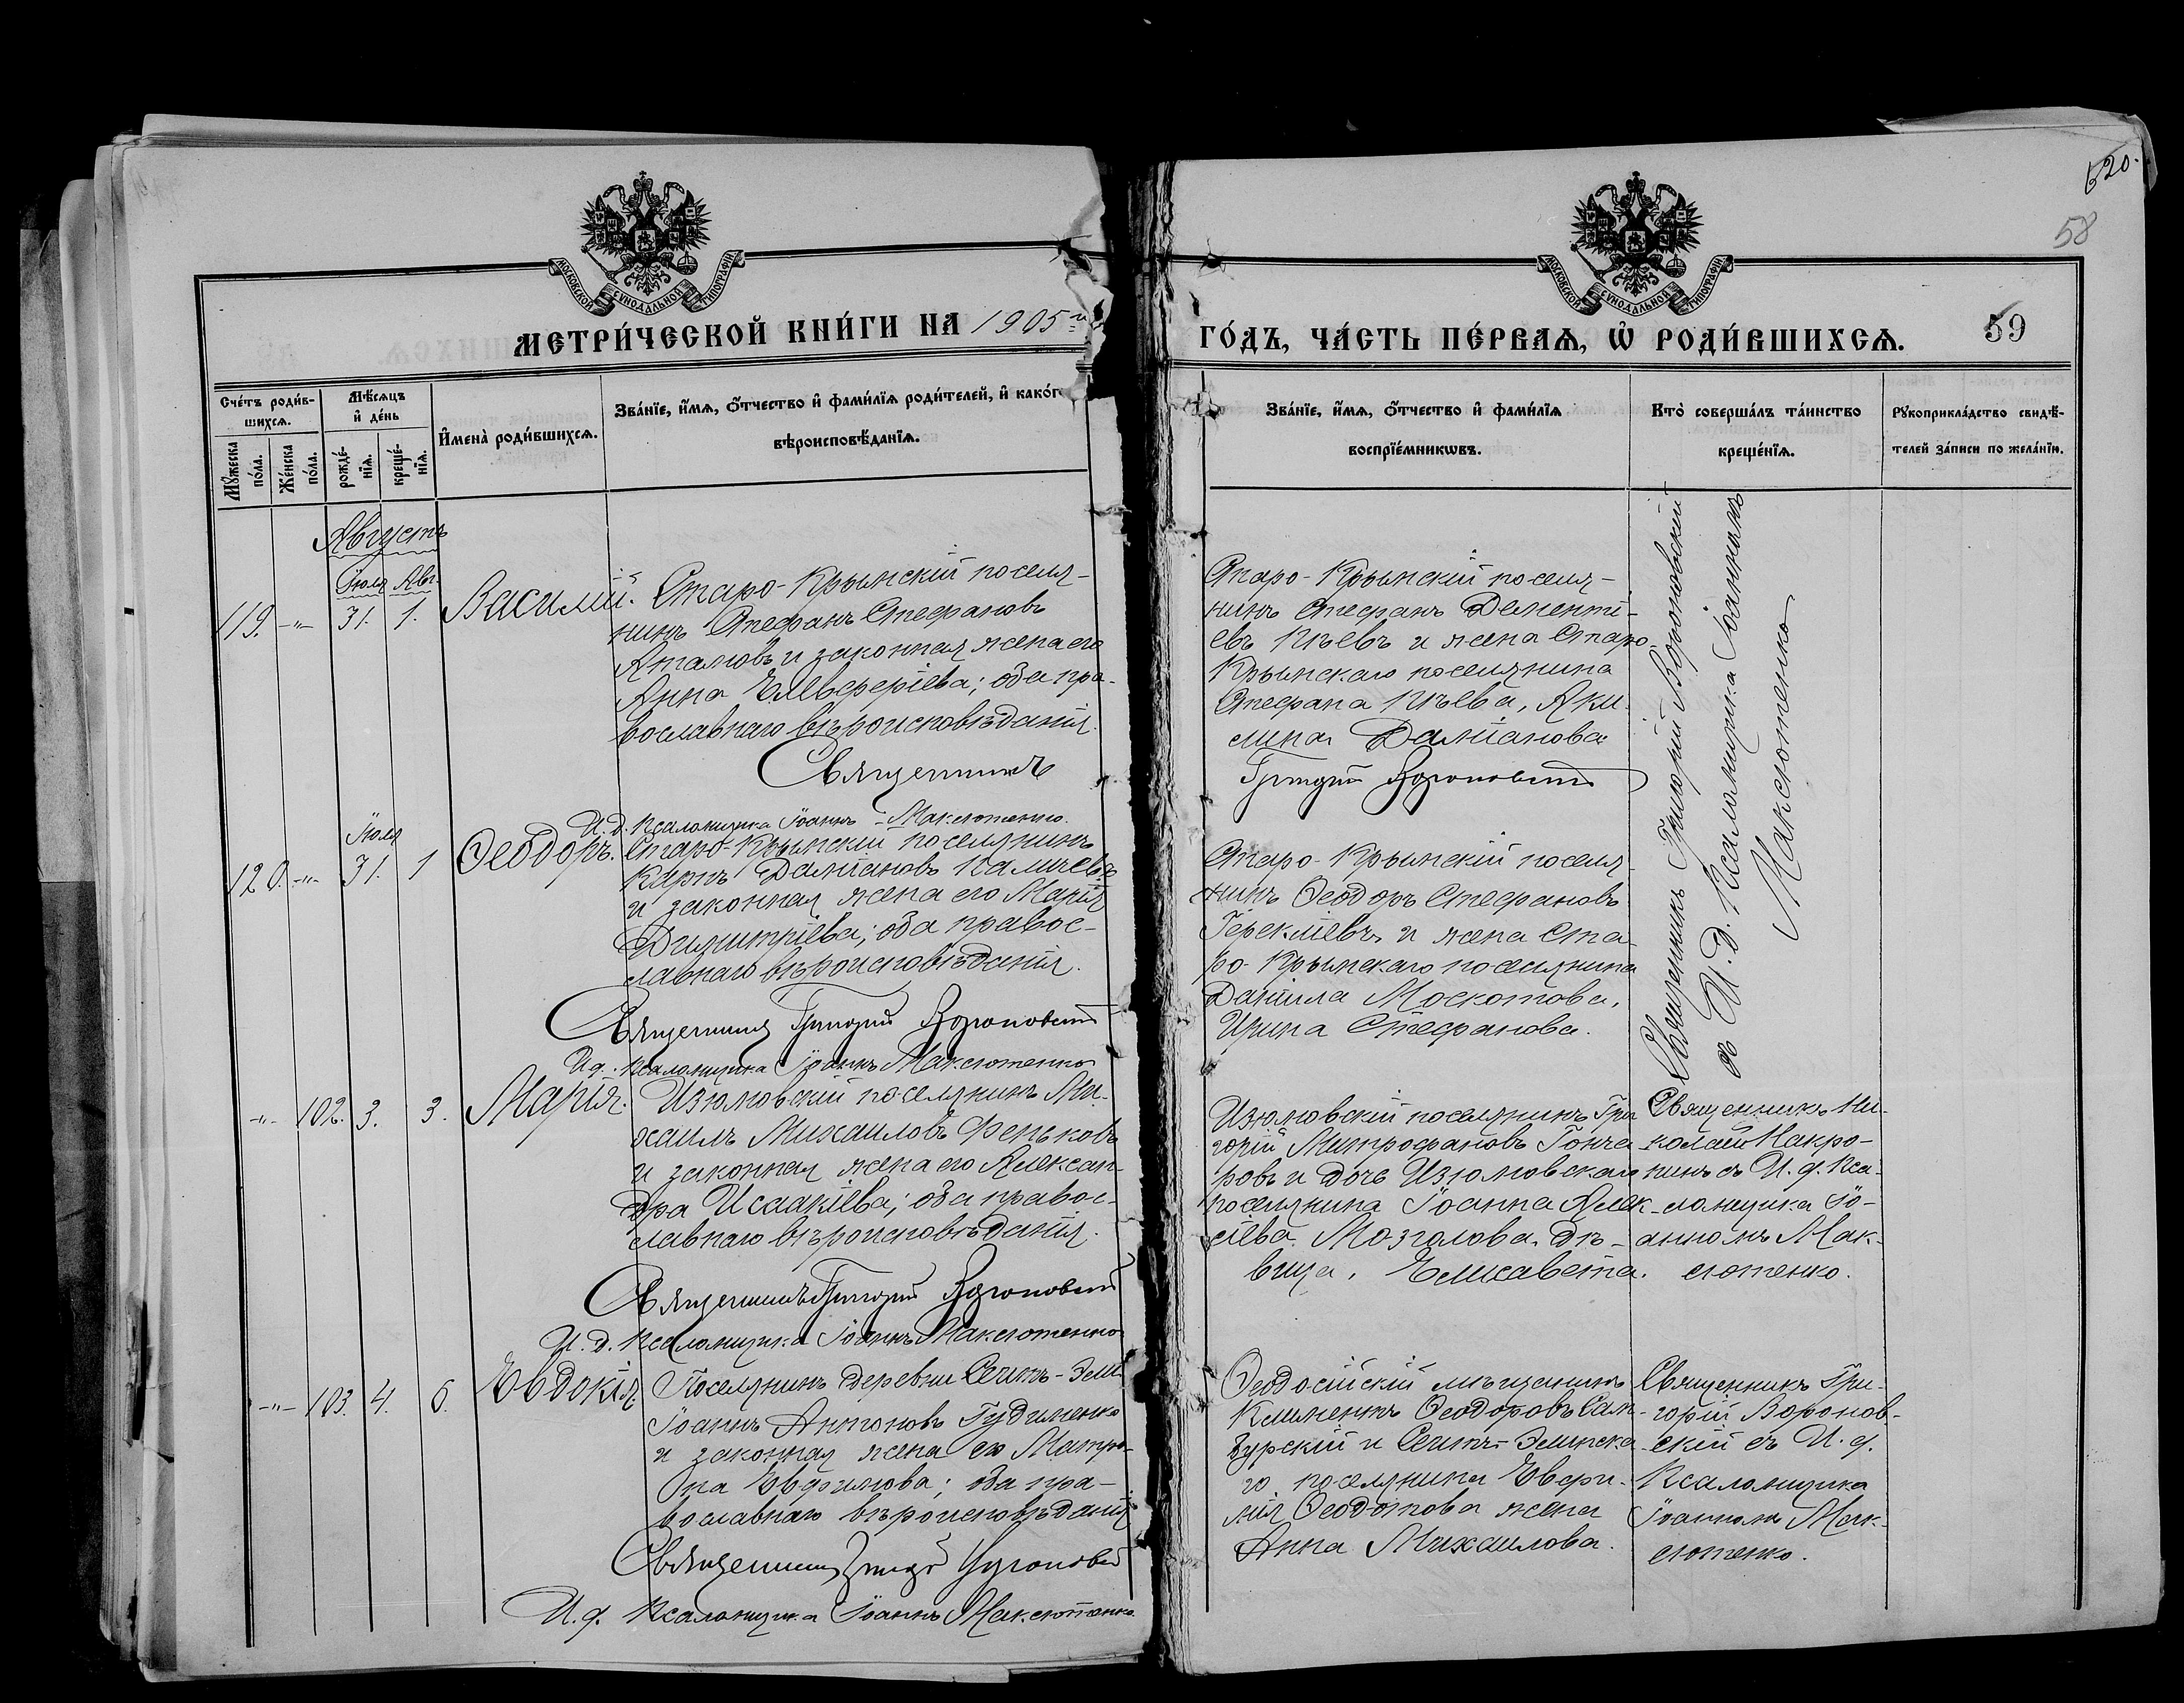 520.
58
МОСКОВСКОЙ СѴНОДАЛЬНОЙ ТИПОГРАФІИ
МОСКОВСКОЙ СѴНОДАЛЬНОЙ ТИПОГРАФІИ
МЕТРИ́ЧЕСКОЙ КНИ́ГИ НА 1905 й
ГО́ДЪ, ЧА́СТЬ ПЕ́РВАѦ, Ѡ҆ РОДИ́ВШИХСѦ.
59
Сче́тъ роди́в-
шихсѧ.
Мꙋ́жеска
по́ла.
Же́нска
по́ла.
Мѣ́сѧцъ
и҆ де́нь
рожде́-
нїѧ.
креще́-
нїѧ.
И҆мена̀ роди́вшихсѧ.
Зва́нїе, и҆́мѧ, ѻ҆́тчество и҆ фами́лїѧ роди́телей, и҆ како́г
вѣроисповѣ́данїѧ.
Зва́нїе, и҆́мѧ, ѻ҆́тчество и҆ фами́лїѧ
воспрїе́мникѡвъ.
Кто̀ соверша́лъ та́инство
креще́нїѧ.
Рꙋкоприкла́дство свидѣ́-
телей за́писи по жела́нїю.
Августъ
Іюля Авг.
119. -"- 31. 1. Василій.
Старо-Крымскій поселя-
нинъ Стефанъ Стефановъ
Аталовъ и законная жена его
Анна Елевферіева; оба пра-
вославнаго вѣроисповѣданія.
Священникъ
И.д. Псаломщика Іоаннъ Максютенко.
Старо-Крымскій поселя-
нинъ Стефанъ Дементі-
евъ и жена Старо-
Крымскаго поселянина
Стефана Аки-
лина Даміанова
Григорій Вороновскій
Священникъ Григорій Вороновскій
съ И.д. Псаломщика Іоанномъ
Максютенко
Іюля
120. -"- 31. 1 Ѳеодоръ.
Старо-Крымскій поселянинъ
Карпъ Даміановъ Калычевъ
и законная жена его Марія
Димитріева; оба правос-
лавнаго вѣроисповѣданія.
Священникъ Григорій Вороновскій
И.д. Псаломщика Іоаннъ Максютенко
Старо-Крымскій поселя-
нинъ Ѳеодоръ Стефановъ
Гереклиевъ и жена Ста-
ро-Крымскаго поселянина
Даніила Москотова,
Ирина Стефанова.
-"- 102. 3. 3. Марія.
Изюмовскій поселянинъ Ми-
хаилъ Михаиловъ Феньковъ
и законная жена его Алексан-
дра Исаакіева; оба правос-
лавнаго вѣроисповѣданія.
Священникъ Григорій Вороновскій
И.д. Псаломщика Іоаннъ Максютенко
Изюмовскій поселянинъ Гри-
горій Митрофановъ Гонча-
ровъ и дочь Изюмовскаго
поселянина Іоанна Алек-
сіева Мозголова, дѣ-
вица, Елисавета.
Священникъ Ни-
колай Макро-
нинъ съ И.д. Пса-
ломщика Іо-
анномъ Мак-
сютенко.
-"- 103. 4. 6. Евдокія.
Поселянинъ деревни Сеитъ-Эли
Іоаннъ Антоновъ Гудименко
и законная жена его Матро-
на Евфимова; оба пра-
вославнаго вѣроисповѣданія
Священникъ Григорій Вороновскій
И.д. Псаломщика Іоаннъ Максютенко
Ѳеодосійскій мѣщанинъ
Климентъ Ѳеодоровъ Сам-
бурскій и Сеитъ-Элинска-
го поселянина Евфи-
мія Ѳеодотова жена
Анна Михаилова.
Священникъ Гри-
горій Воронов-
скій съ И.д.
Псаломщика
Іоанномъ Мак-
сютенко.